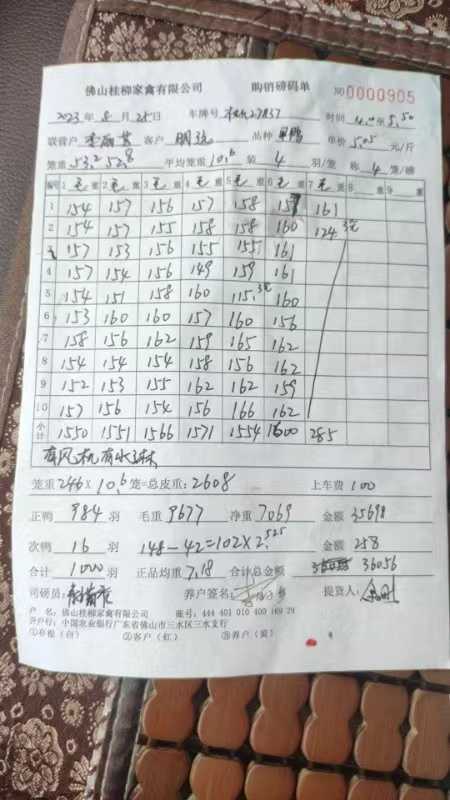 佛山桂柳家禽有限公司 购销磅码单 NO 0000905
2023年8月25日 车牌号 27837 时间 5.50
联营户 客户 品种 单价5.05元/斤
笼重 53.2 52.8 平均笼重10.6 装4羽/笼 称4笼/磅
编号 1毛重 2毛重 3毛重 4毛重 5毛重 6毛重 7毛重 8 重 9 重
1 154 157 156 157 158 161
2 154 157 155 158 158 160 124 3笼
3 157 153 156 155 155 161
4 157 154 156 149 159 161
5 154 151 158 160 115 3笼 160
6 153 160 160 157 160 156
7 158 156 162 159 165 162
8 154 154 154 158 156 162
9 152 153 155 162 162 159
10 157 156 154 156 166 162
小计 1550 1551 1566 1571 1554 1600 285
有风机有水淋
笼重246×10.6笼=总皮重:2608 上车费100
正鸭984羽 毛重9677 净重7069 金额35698
次鸭16羽 148-42=102×2.525 金额258
合计1000羽 正品均重7.18 合计总金额 36056
司磅员: 养户签名: 提货人:
户 名:佛山桂柳家禽有限公司 账号:444 401 010 400 169 29
开户行:中国农业银行广东省佛山市三水区三水支行
①存根(白) ②客户(红) ③养户(黄)